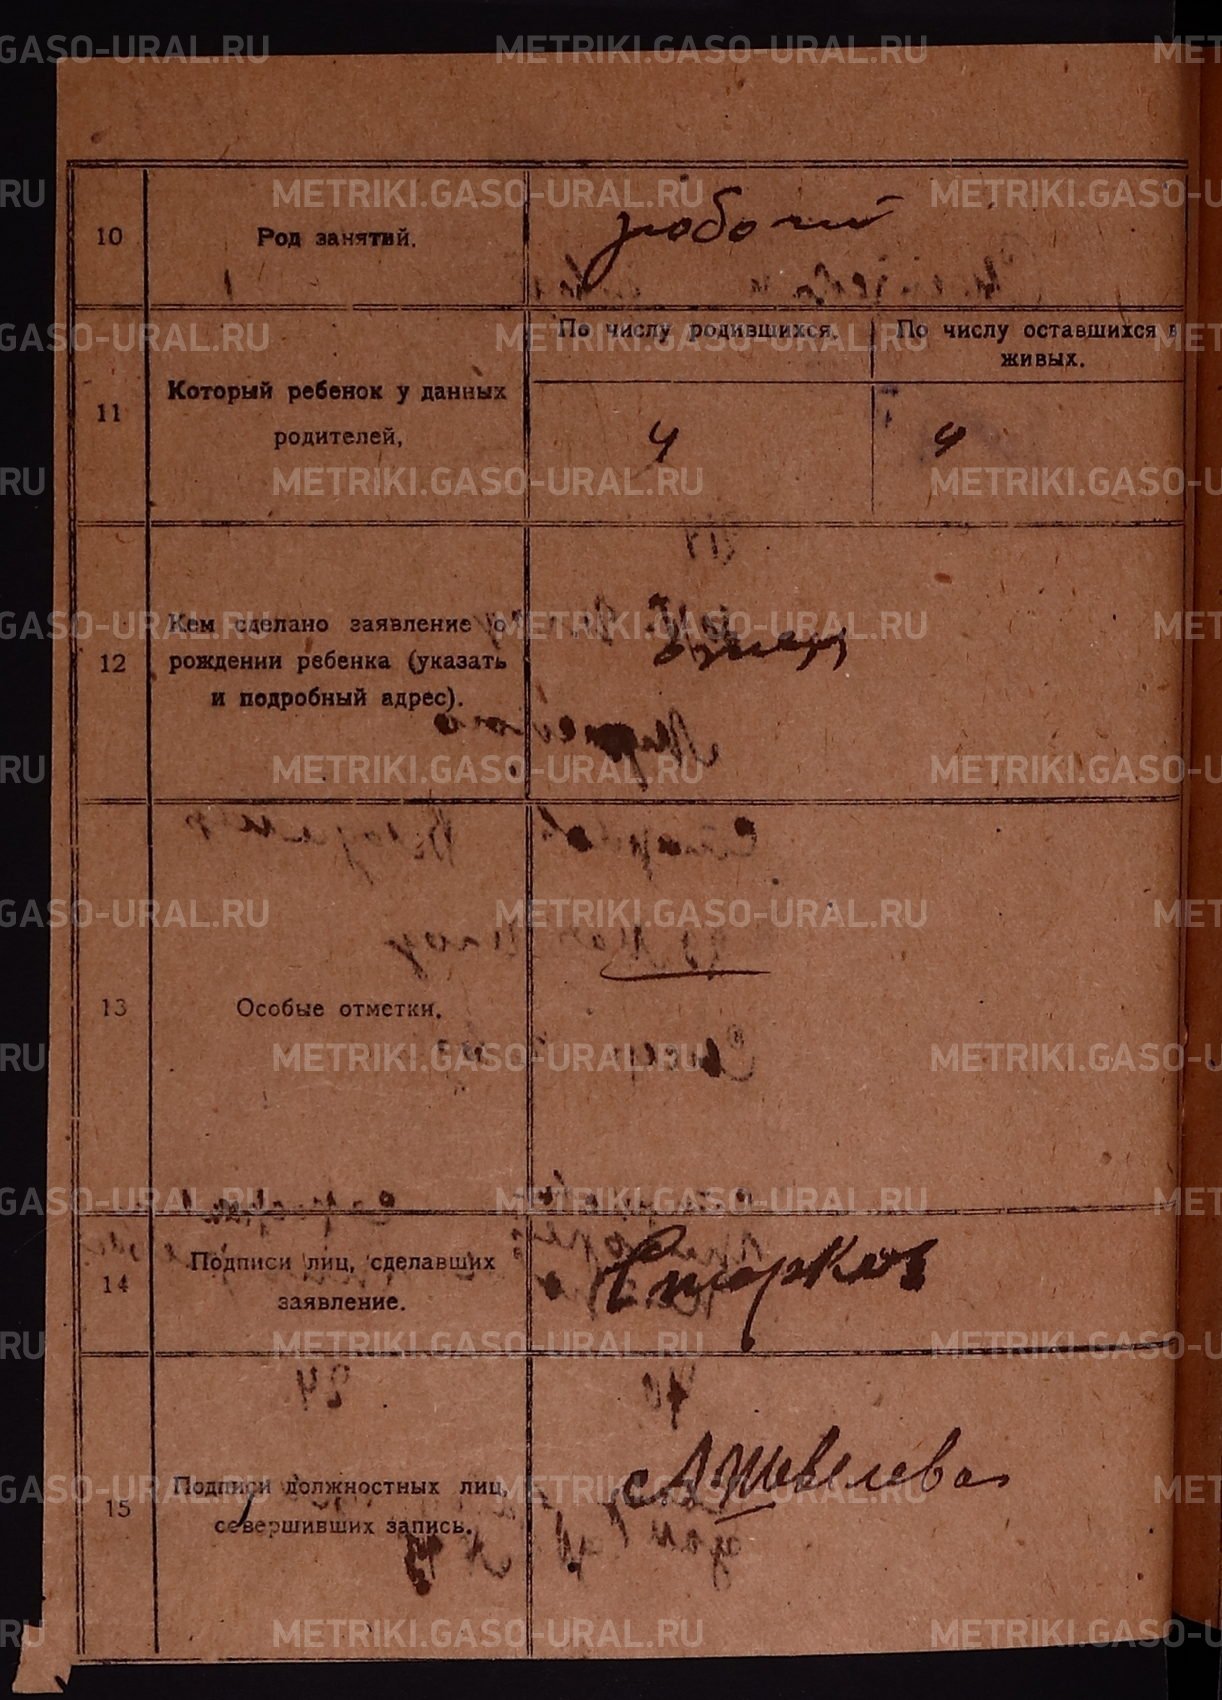 10
Род занятий.
рабочий
11
Который ребенок у данных
родителей,
По числу родившихся.
По числу оставшихся в
живых.
4
4
12
Кем сделано заявление о
рождении ребенка (указать
и подробный адрес).
Отец
13
Особые отметки.
14
Подписи лиц, сделавших
заявление.
Старков
15
Подписи должностных лиц,
совершивших запись.
А Шевелева
METRIKI.GASO-URAL.RU